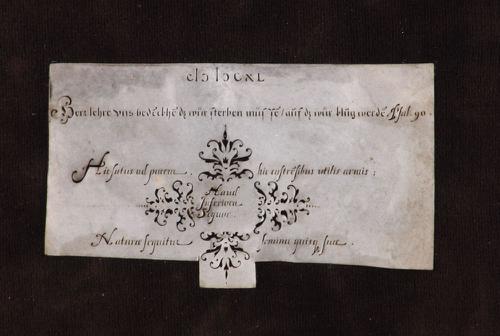 cIↃ IↃCXL
Herr lehre vns bedeckhe dz wür sterben müssē / auf dz wür klug werdē Psal. 90.
Hic satus ad pacem. hic castrēsibus utilis armis;
Haud
Inferiora
Sequor.
Naturæ sequitur semina quisq, suæ.